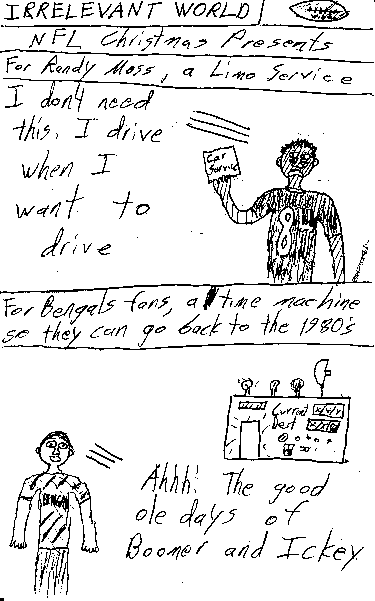 IRRELEVANT WORLD
NFL Christmas Presents
For Randy Moss, a Limo Service
I don't need
this. I drive
when I
want to
drive
Car
Service
8
For Bengals fans, a time machine
so they can go back to the 1980's
Current
Dest
BENGAL
Ahhh! The good
ole days of
Boomer and Ickey